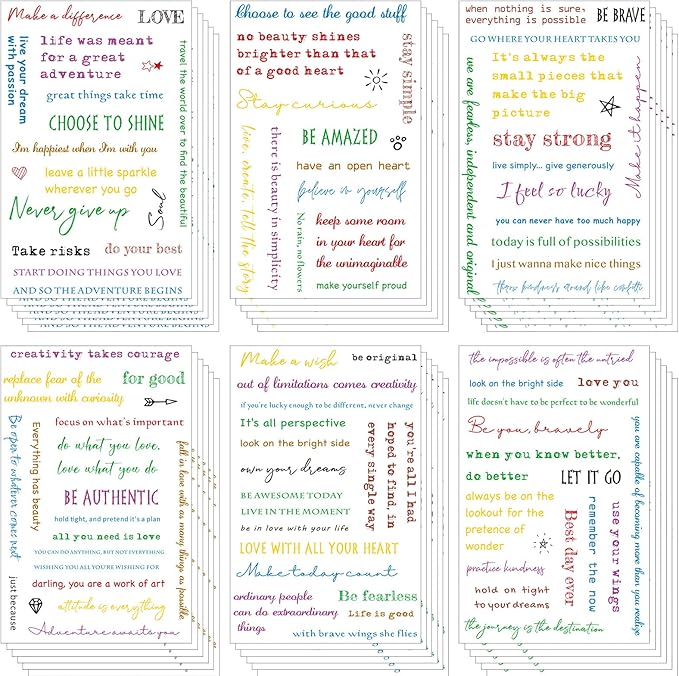 Make a difference
LOVE
live your dream
with passion
life was meant
for a great
adventure
travel the world over to find the beautiful
great things take time
CHOOSE TO SHINE
I'm happiest when I'm with you
leave a little sparkle
wherever you go
Never give up
Soul
Take risks
do your best
START DOING THINGS YOU LOVE
AND SO THE ADVENTURE BEGINS
AND SO THE ADVENTURE BEGINS
AND SO THE ADVENTURE BEGINS
AND SO THE ADVENTURE BEGINS
Choose to see the good stuff
no beauty shines
brighter than that
of a good heart
stay simple
Stay curious
love, create, tell the story
there is beauty in simplicity
BE AMAZED
have an open heart
believe in yourself
No rain, no flowers
keep some room
in your heart for
the unimaginable
make yourself proud
when nothing is sure,
everything is possible
BE BRAVE
GO WHERE YOUR HEART TAKES YOU
we are fearless, independent and original
It's always the
small pieces that
make the big
picture
Make it happen
stay strong
live simply... give generously
I feel so lucky
you can never have too much happy
today is full of possibilities
I just wanna make nice things
throw kindness around like confetti
creativity takes courage
replace fear of the
unknown with curiosity
for good
Be open to whatever comes next
Everything has beauty
focus on what's important
do what you love,
love what you do
fall in love with as many things as possible
BE AUTHENTIC
hold tight, and pretend it's a plan
all you need is love
YOU CAN DO ANYTHING, BUT NOT EVERYTHING
WISHING YOU ALL YOU'RE WISHING FOR
just because
darling, you are a work of art
attitude is everything
Adventure awaits you
Make a wish
be original
out of limitations comes creativity
if you're lucky enough to be different, never change
It's all perspective
look on the bright side
own your dreams
you're all I had
hoped to find, in
every single way
BE AWESOME TODAY
LIVE IN THE MOMENT
be in love with your life
LOVE WITH ALL YOUR HEART
Make today count
ordinary people
can do extraordinary
things
Be fearless
Life is good
with brave wings she flies
the impossible is often the untried
look on the bright side
love you
life doesn't have to be perfect to be wonderful
Be you, bravely
you are capable of becoming more than you realize
when you know better,
do better
LET IT GO
always be on the
lookout for the
pretence of
wonder
Best day ever
remember the now
use your wings
practice kindness
hold on tight
to your dreams
the journey is the destination